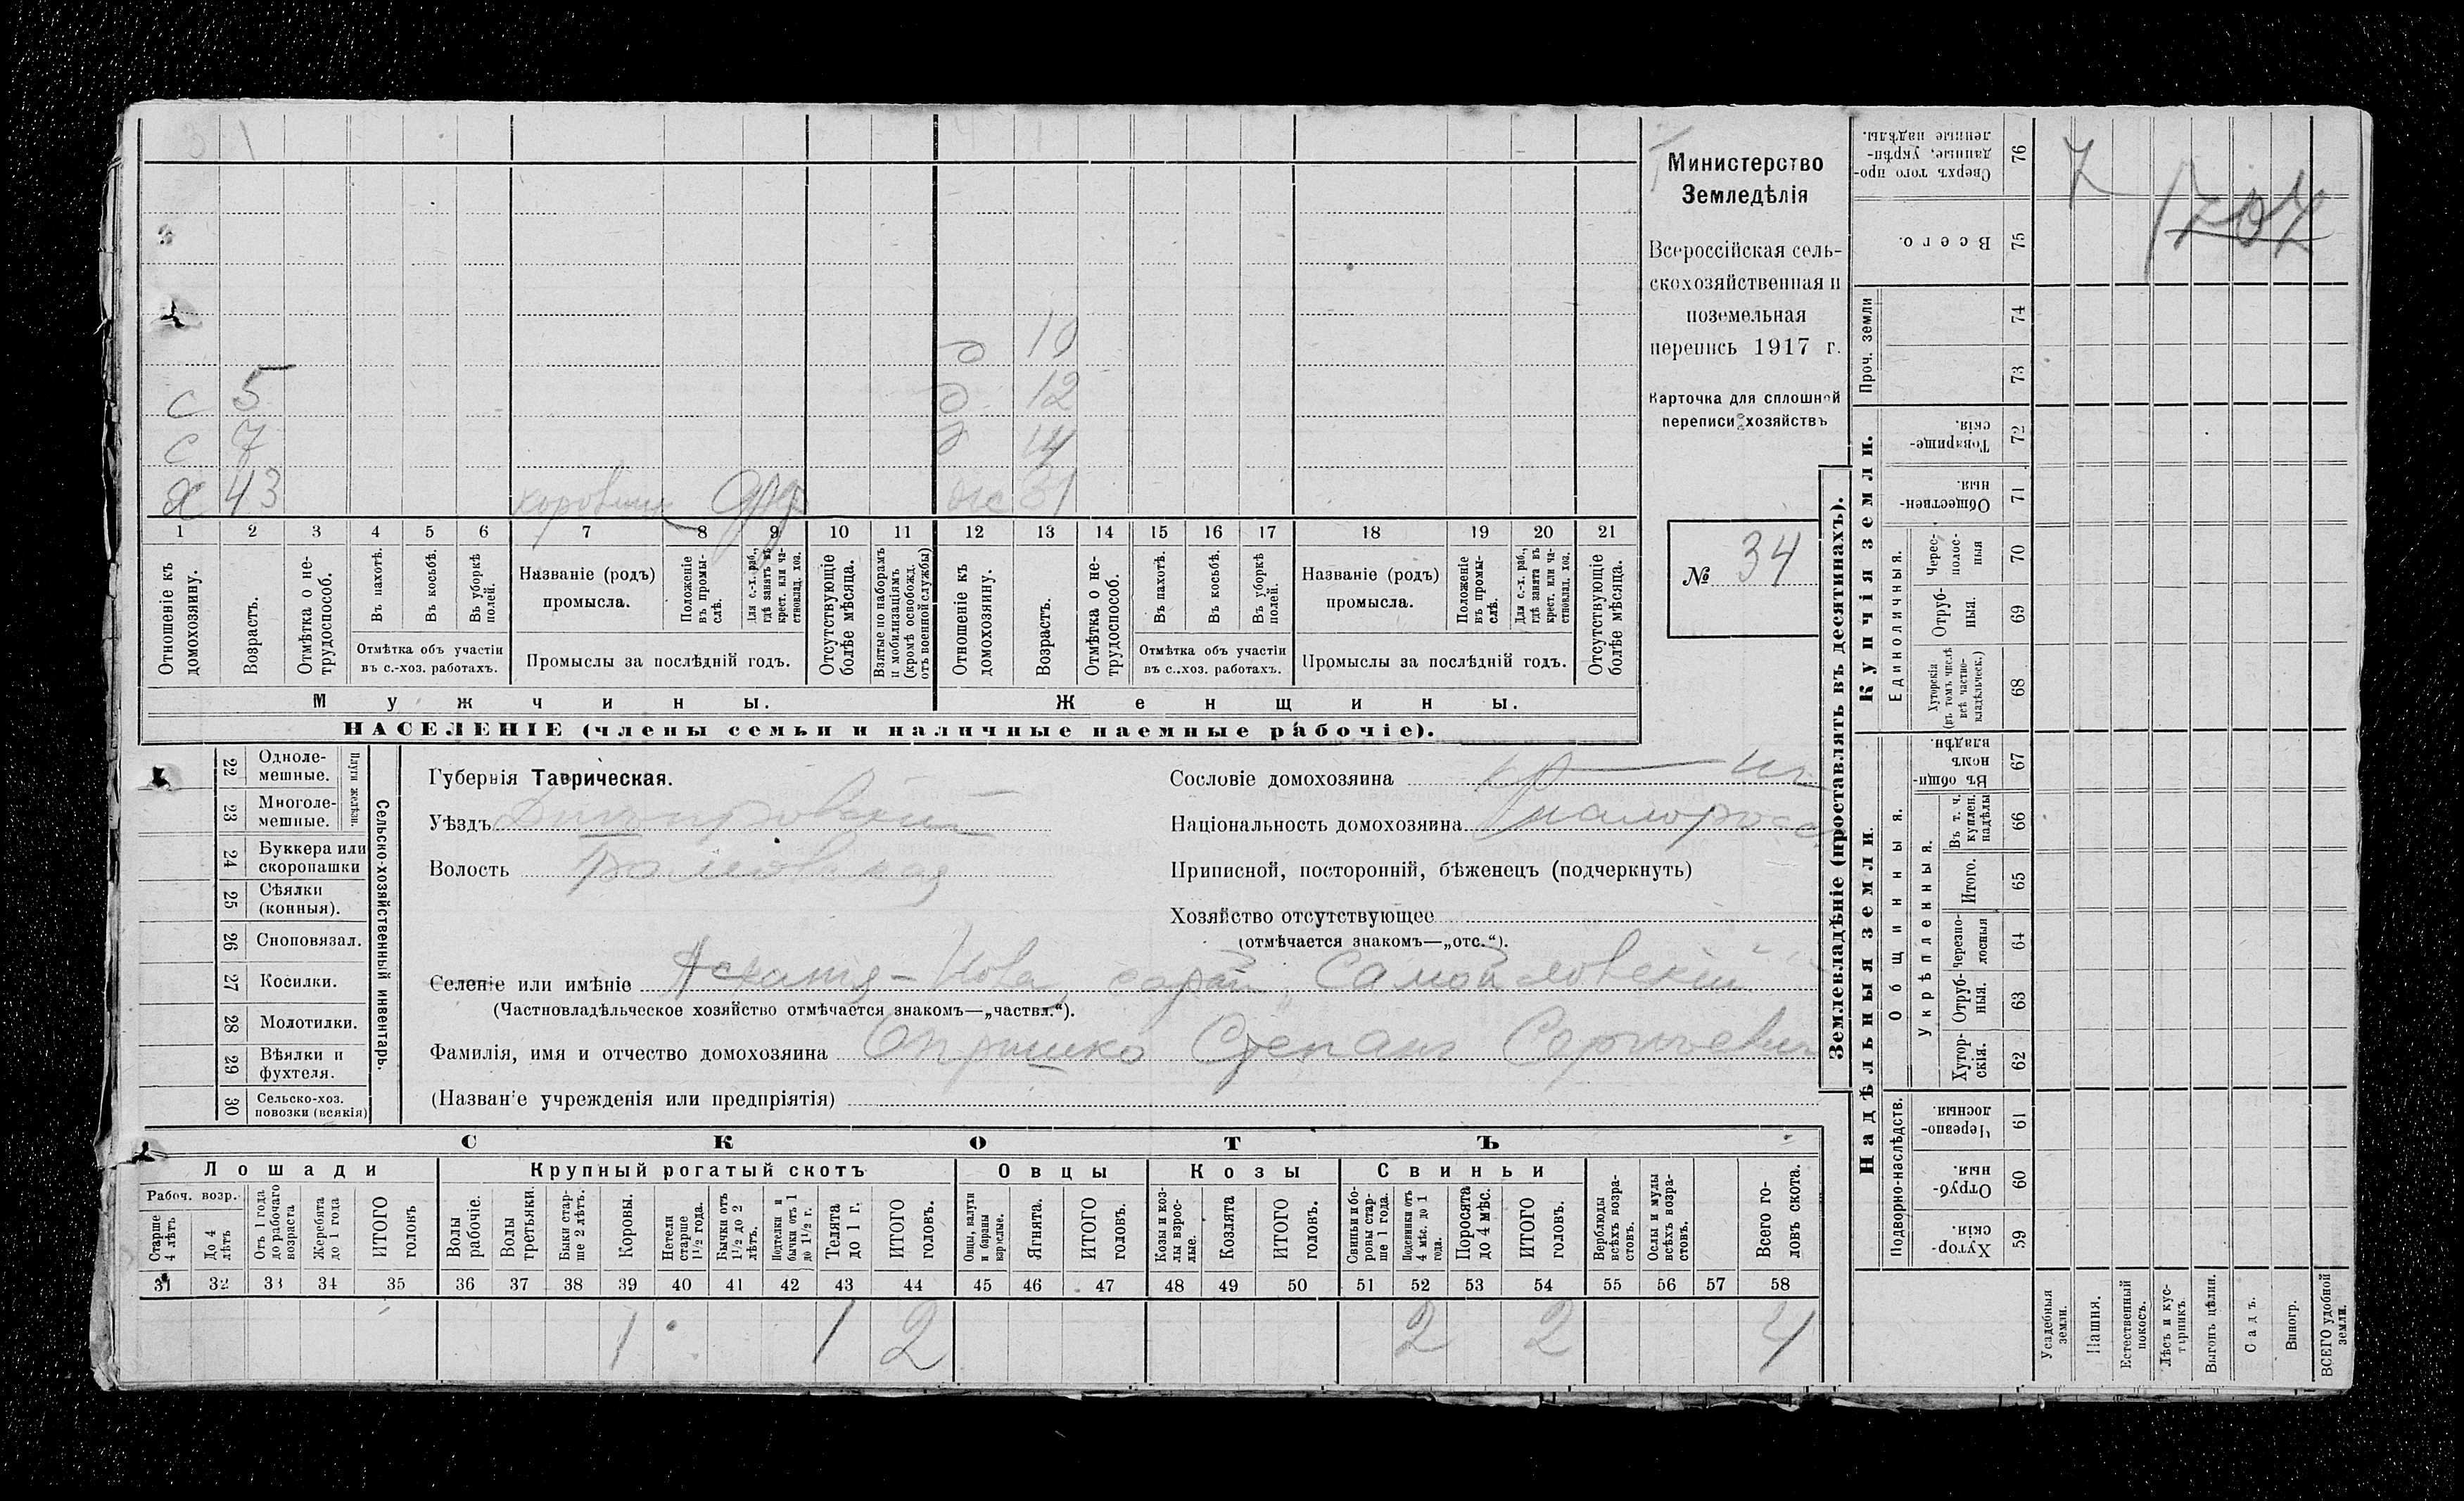 3 1
7
1707
д 10
с 5 д. 12
с 7 д 14
х 43 жс 31
1 2 3 4 5 6 7 8 9 10 11 12 13 14 15 16 17 18 19 20 21
Отношеніе къ домохозяину.
Возрастъ.
Отмѣтка о не-трудоспособ.
Въ пахотѣ.
Въ косьбѣ.
Въ уборкѣ полей.
Отмѣтка объ участіи
въ с.-хоз. работахъ.
Названіе (родъ)
промысла.
Положеніе въ промы-слѣ.
Для с.-х. раб., гдѣ занятъ въ крест. или ча-стновлад. хоз.
Промыслы за послѣдній годъ.
Отсутствующіе болѣе мѣсяца.
Взятые по наборамъ и мобилизаціямъ (кромѣ освобожд. отъ военной службы)
Отношеніе къ домохозяину.
Возрастъ.
Отмѣтка о не-трудоспособ.
Въ пахотѣ.
Въ косьбѣ.
Въ уборкѣ полей.
Отмѣтка объ участіи
въ с..хоз. работахъ.
Названіе (родъ)
промысла.
Положеніе въ промы-слѣ.
Для с.-х. раб., гдѣ занята въ крест. или ча-стновлад. хоз.
Промыслы за послѣдній годъ.
Отсутствующіе болѣе мѣсяца.
Мужчины.
Женщины.
НАСЕЛЕНІЕ (члены семьи и наличные наемные рабочіе).
Министерство
Земледѣлія
Всероссійская сель-
скохозяйственная и
поземельная
перепись 1917 г.
Карточка для сплошной
переписи хозяйствъ
№ 34
22 Одноле-мешные.
23 Многоле-мешные.
Плуги желѣзн.
24 Буккера или скоропашки
25 Сѣялки (конныя).
26 Сноповязал.
27 Косилки.
28 Молотилки.
29 Вѣялки и фухтеля.
30 Сельско-хоз. повозки (всякія)
Сельско-хозяйственный инвентарь.
Губернія Таврическая.
Уѣздъ Днѣпровскій
Волость
Сословіе домохозяина
Національность домохозяина малоросс
Приписной, посторонній, бѣженецъ (подчеркнуть)
Хозяйство отсутствующее
(отмѣчается знакомъ—„отс.“).
Селеніе или имѣніе Асканія-Нова, сарай „Самойловскій
(Частновладѣльческое хозяйство отмѣчается знакомъ—„частвл.“).
Фамилія, имя и отчество домохозяина Опришко Степанъ
(Названіе учрежденія или предпріятія)
СКОТЪ
Лошади
Рабоч. возр.
Старше 4 лѣтъ
До 4 лѣтъ
Отъ 1 года до рабочаго возраста
Жеребята до 1 года
ИТОГО головъ
Крупный рогатый скотъ
Волы рабочіе.
Волы третьяки.
Быки стар-ше 2 лѣтъ.
Коровы.
Нетели старше 1½ года.
Бычки отъ 1½ до 2 лѣтъ.
Подтелки и бычки отъ 1 до 1½ г.
Телята до 1 г.
ИТОГО головъ.
Овцы
Овцы, валухи и бараны взрослые.
Ягнята.
ИТОГО головъ.
Козы
Козы и коз-лы взрос-лые.
Козлята
ИТОГО головъ.
Свиньи
Свиньи и бо-ровы стар-ше 1 года.
Подсвинки отъ 4 мѣс. до 1 года.
Поросята до 4 мѣс.
ИТОГО головъ.
Верблюды всѣхъ возра-стовъ.
Ослы и мулы всѣхъ возра-стовъ.
Всего го-ловъ скота.
31 32 33 34 35 36 37 38 39 40 41 42 43 44 45 46 47 48 49 50 51 52 53 54 55 56 57 58
1 1 2 2 2 4
Землевладѣніе (проставлять въ десятинахъ).
Надѣльныя земли.
Купчія земли.
Проч. земли
Подворно-наслѣдств.
Общинныя.
Укрѣпленныя.
Единоличныя.
76 Сверхъ того про-данные, укрѣп-ленные надѣлы.
75 Всего.
74
73
72 Товарище-скія.
71 Обществен-ныя.
70 Черес-полос-ныя
69 Отруб-ныя.
68 Хуторскія (въ томъ числѣ всѣ частно-владѣльческ.)
67 Въ общи-номъ владѣн.
66 Въ т. ч. куплен. надѣлы
65 Итого.
64 Черезпо-лосныя
63 Отруб-ныя.
62 Хутор-скія.
61 Черезпо-лосныя.
60 Отруб-ныя.
59 Хутор-скія.
Усадебныя земли.
Пашня.
Естественный покосъ.
Лѣсъ и кус-тарникъ.
Выгонъ цѣлин.
Садъ.
Виногр.
ВСЕГО удобной земли.